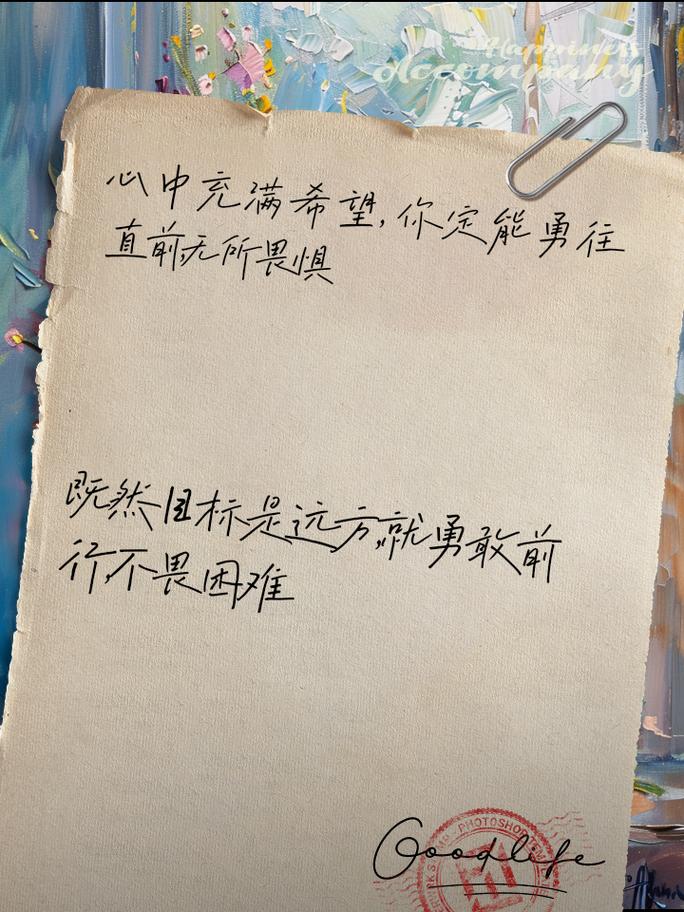 Happiness
accompany
心中充满希望,你定能勇往
直前,无所畏惧
既然目标是远方,就勇敢前
行,不畏困难
PHOTOSHOP
Goodlife